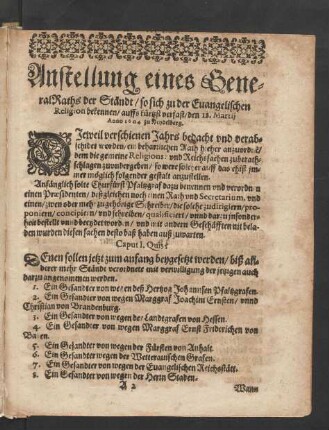 Anstellung eines Gene-
ral Raths der Ständt / so sich zu der Euangelischen
Religion bekennen / auffs kürtzst verfast / den 18. Martij
Anno 1604 zu Heidelberg.
Dieweil verschienen Jahrs bedacht vnd verab-
schidet worden / ein beharrlichen Rath hieher anzuord-
dem die gemeine Religions- vnd Reichssachen zuberath-
schlagen zuundergeben / so were solcher auff das ehist im-
mer möglich folgender gestalt anzustellen.
Anfänglich solte Churfürst Pfaltzgraf dozu benennen vnd verordnen
einen Præsidenten / deßgleichen noch einen Rath vnd Secretarium, vnd
einen / zwen oder mehr zugehörige Schreiber / die solches zudirigiern / pro-
poniern / concipirn / vnd schreiben / qualificiert / vnnd darzu insonder-
heit bestelt vnd beeydet worden / vnd mit andern Geschäfften nit beladen
wurden diesen sachen desto baß haben auß zuwarten.
Caput I. Quis?
Denen sollen jetzt zum anfang beygesetzt werden / biß als
derer mehr Stände verordnete mit verwilligung der jetzigen auch
darzu angenommen werden.
1. Ein Gesandter von wegen deß Hertzog Johannsen Pfaltzgrafen.
2. Ein Gesandter von wegen Marggraf Joachim Ernsten / vnnd
Christian von Brandenburg.
3. Ein Gesandter von wegen des Landtgrafen von Hessen.
4. Ein Gesandter von wegen Marggraf Ernst Friderichen von
Baden.
5. Ein Gesandter von wegen der Fürsten von Anhalt.
6. Ein Gesandter von wegen der Wetterauischen Grafen.
7. Ein Gesandter von wegen der Euangelischen Reichsstätt.
8. Ein Gesandter von wegen der Herrn Staden.
A 2
Wann